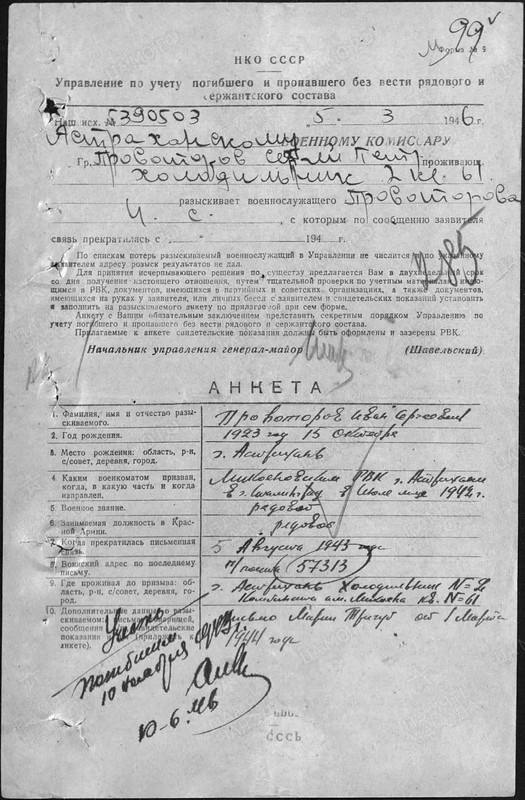 99
Форма № 9
НКО СССР
Управление по учету погибшего и пропавшего без вести рядового и
сержантского состава
Наш исх. № 5390503 5. 3 1946 г.
Астраханскому ВОЕННОМУ КОМИССАРУ
Гр. Провоторов Петр проживающ.
Холодильник 2 кв. 61.
разыскивает военнослужащего Провоторова
И. С. , с которым по сообщению заявителя
связь прекратилась с 194 г.
По спискам потерь разыскиваемый военнослужащий в Управлении не числится и по указанному
заявителем адресу, розыск результатов не дал.
Для принятия исчерпывающего решения по существу предлагается Вам в двухнедельный срок
со дня получения настоящего отношения, путем тщательной проверки по учетным материалам имею-
щимся в РВК, документов, имеющихся в партийных и советских организациях, а также документов,
имеющихся на руках у заявителя, или личных бесед с заявителем и свидетельских показаний установить
и заполнить на разыскиваемого анкету по прилагаемой при сем форме.
Анкету с Вашим обязательным заключением представить секретным порядком Управлению по
учету погибшего и пропавшего без вести рядового и сержантского состава.
Прилагаемые к анкете свидетельские показания должны быть оформлены и заверены РВК.
Начальник управления генерал-майор (Шавельский)
АНКЕТА
1. Фамилия, имя и отчество разы-
скиваемого.
Провоторов Иван Сергеевич
2. Год рождения.
1923 год 15 Октября
3. Место рождения: область, р-н,
с/совет, деревня, город.
г. Астрахань
4. Каким военкоматом призван,
когда, в какую часть и когда
направлен.
Микояновским РВК г. Астрахани
в г. Сталинград в Июле м-це 1942 г.
5. Военное звание.
рядовой
6. Занимаемая должность в Крас-
ной Армии.
рядовой
7. Когда прекратилась письменная
связь.
5 Августа 1943 года
8. Воинский адрес по последнему
письму.
п/почта (57313)
9. Где проживал до призыва: об-
ласть, р-н, с/совет, деревня, го-
род.
г. Астрахань Холодильник N=2
им. Микояна кв. N=61
10. Дополнительные данные о разы-
скиваемом:
показания
анкете).
письмо Марии от 1 Марта
1944 года
Учесть
погибшим
10 ноября
10-6.46
СССР